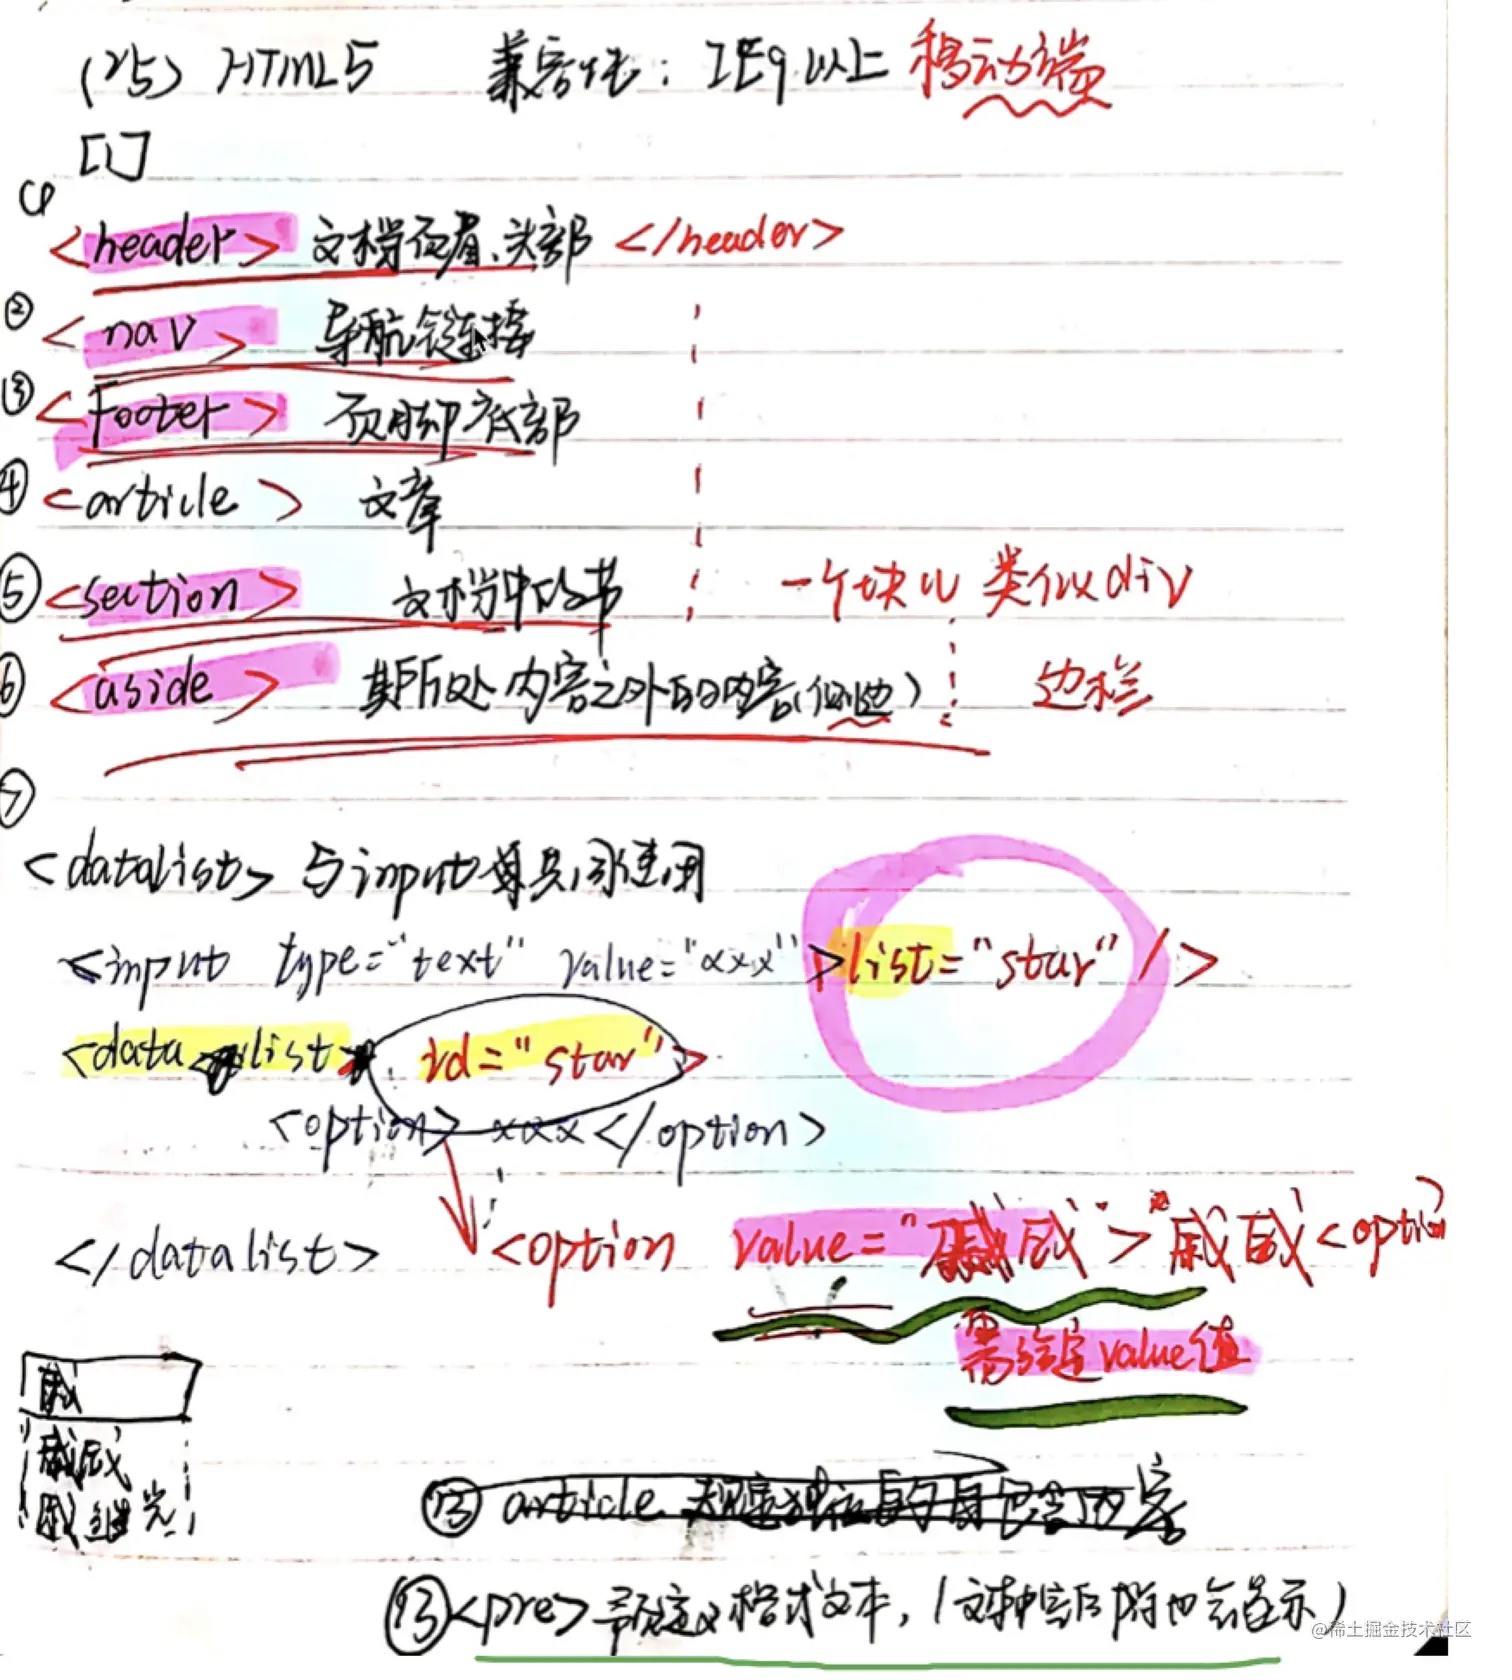 (25) HTML5 兼容性: IE9以上 移动端
[1]
①
<header> 文档页眉、头部 </header>
②
<nav> 导航链接
③
<Footer> 页脚 底部
④ <article> 文章
⑤ <section> 文档中的节 一个块 类似div
⑥ <aside> 其所处内容之外的内容(侧边) 边栏
⑦
<datalist> 与input 使用
<input type="text" value="xxx">list="star"/>
<data list id="star">
<option> xxx</option>
</datalist> <option value=" 威">威<option
需给定value值
article 规定独立的自包含内容
⑬<pre> 预定义格式文本, (
@稀土掘金技术社区